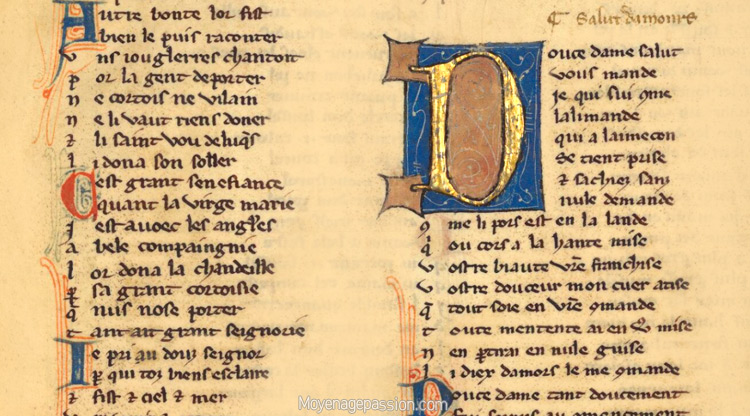 Autre bonte lor fist
Abien le puis raconter
vns iouglerres chantoit
por la gent deporter
ne cortois ne vilain
ne li vaut riens doner
⁊ li saint vou de luq̃s
li dona son soller
Cest grant senefiance
quant la virge marie
iest auoec les angl̃es
a bele compaingnie
lor dona la chandeille
ꝑ sa grant cortoisie
q̃ nuis nose porter
tant ait grant seignorie
Ie pri au douz seignor
ꝑ qui toz biens esclaire
⁊ fist ⁊ ciel ⁊ mer
₵ Salut damours
Douce dame salut
vous mande
ie qui sui ꝯme
lalimande
qui a laimecon
se tient prise
⁊ sachiez sanz
nule demande
ꝯme li pors est en la lande
q̇ ou cors a la hante mise
vostre biaute vr̃e franchise
vostre douceur mon cuer atise
q̃ tout soie en vr̃e ꝯmande
toute mentente ai en v͛ mise
nen ꝑtirai en nule guise
li diex damors le me ꝯmande
Douce dame tant doucement
Moyenagepassion.com